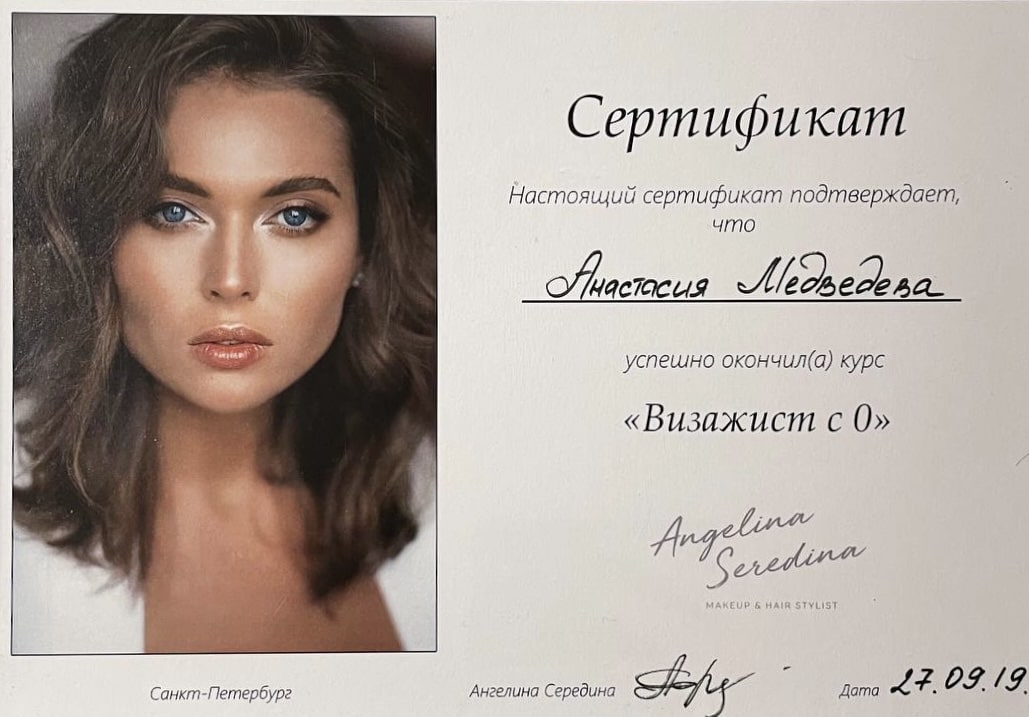 Сертификат
Настоящий сертификат подтверждает,
что
Анастасия Медведева
успешно окончил(а) курс
«Визажист с 0»
Angelina
Seredina
MAKEUP & HAIR STYLIST
Санкт-Петербург
Ангелина Середина
Дата 27.09.19.